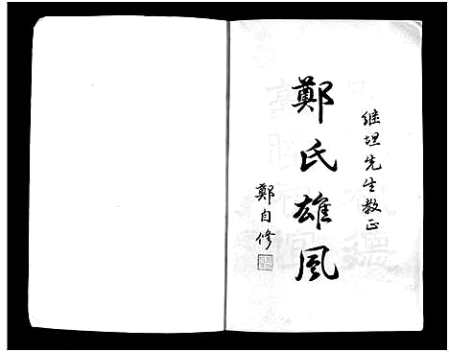 继坦先生教正
鄭氏雄風
鄭自修